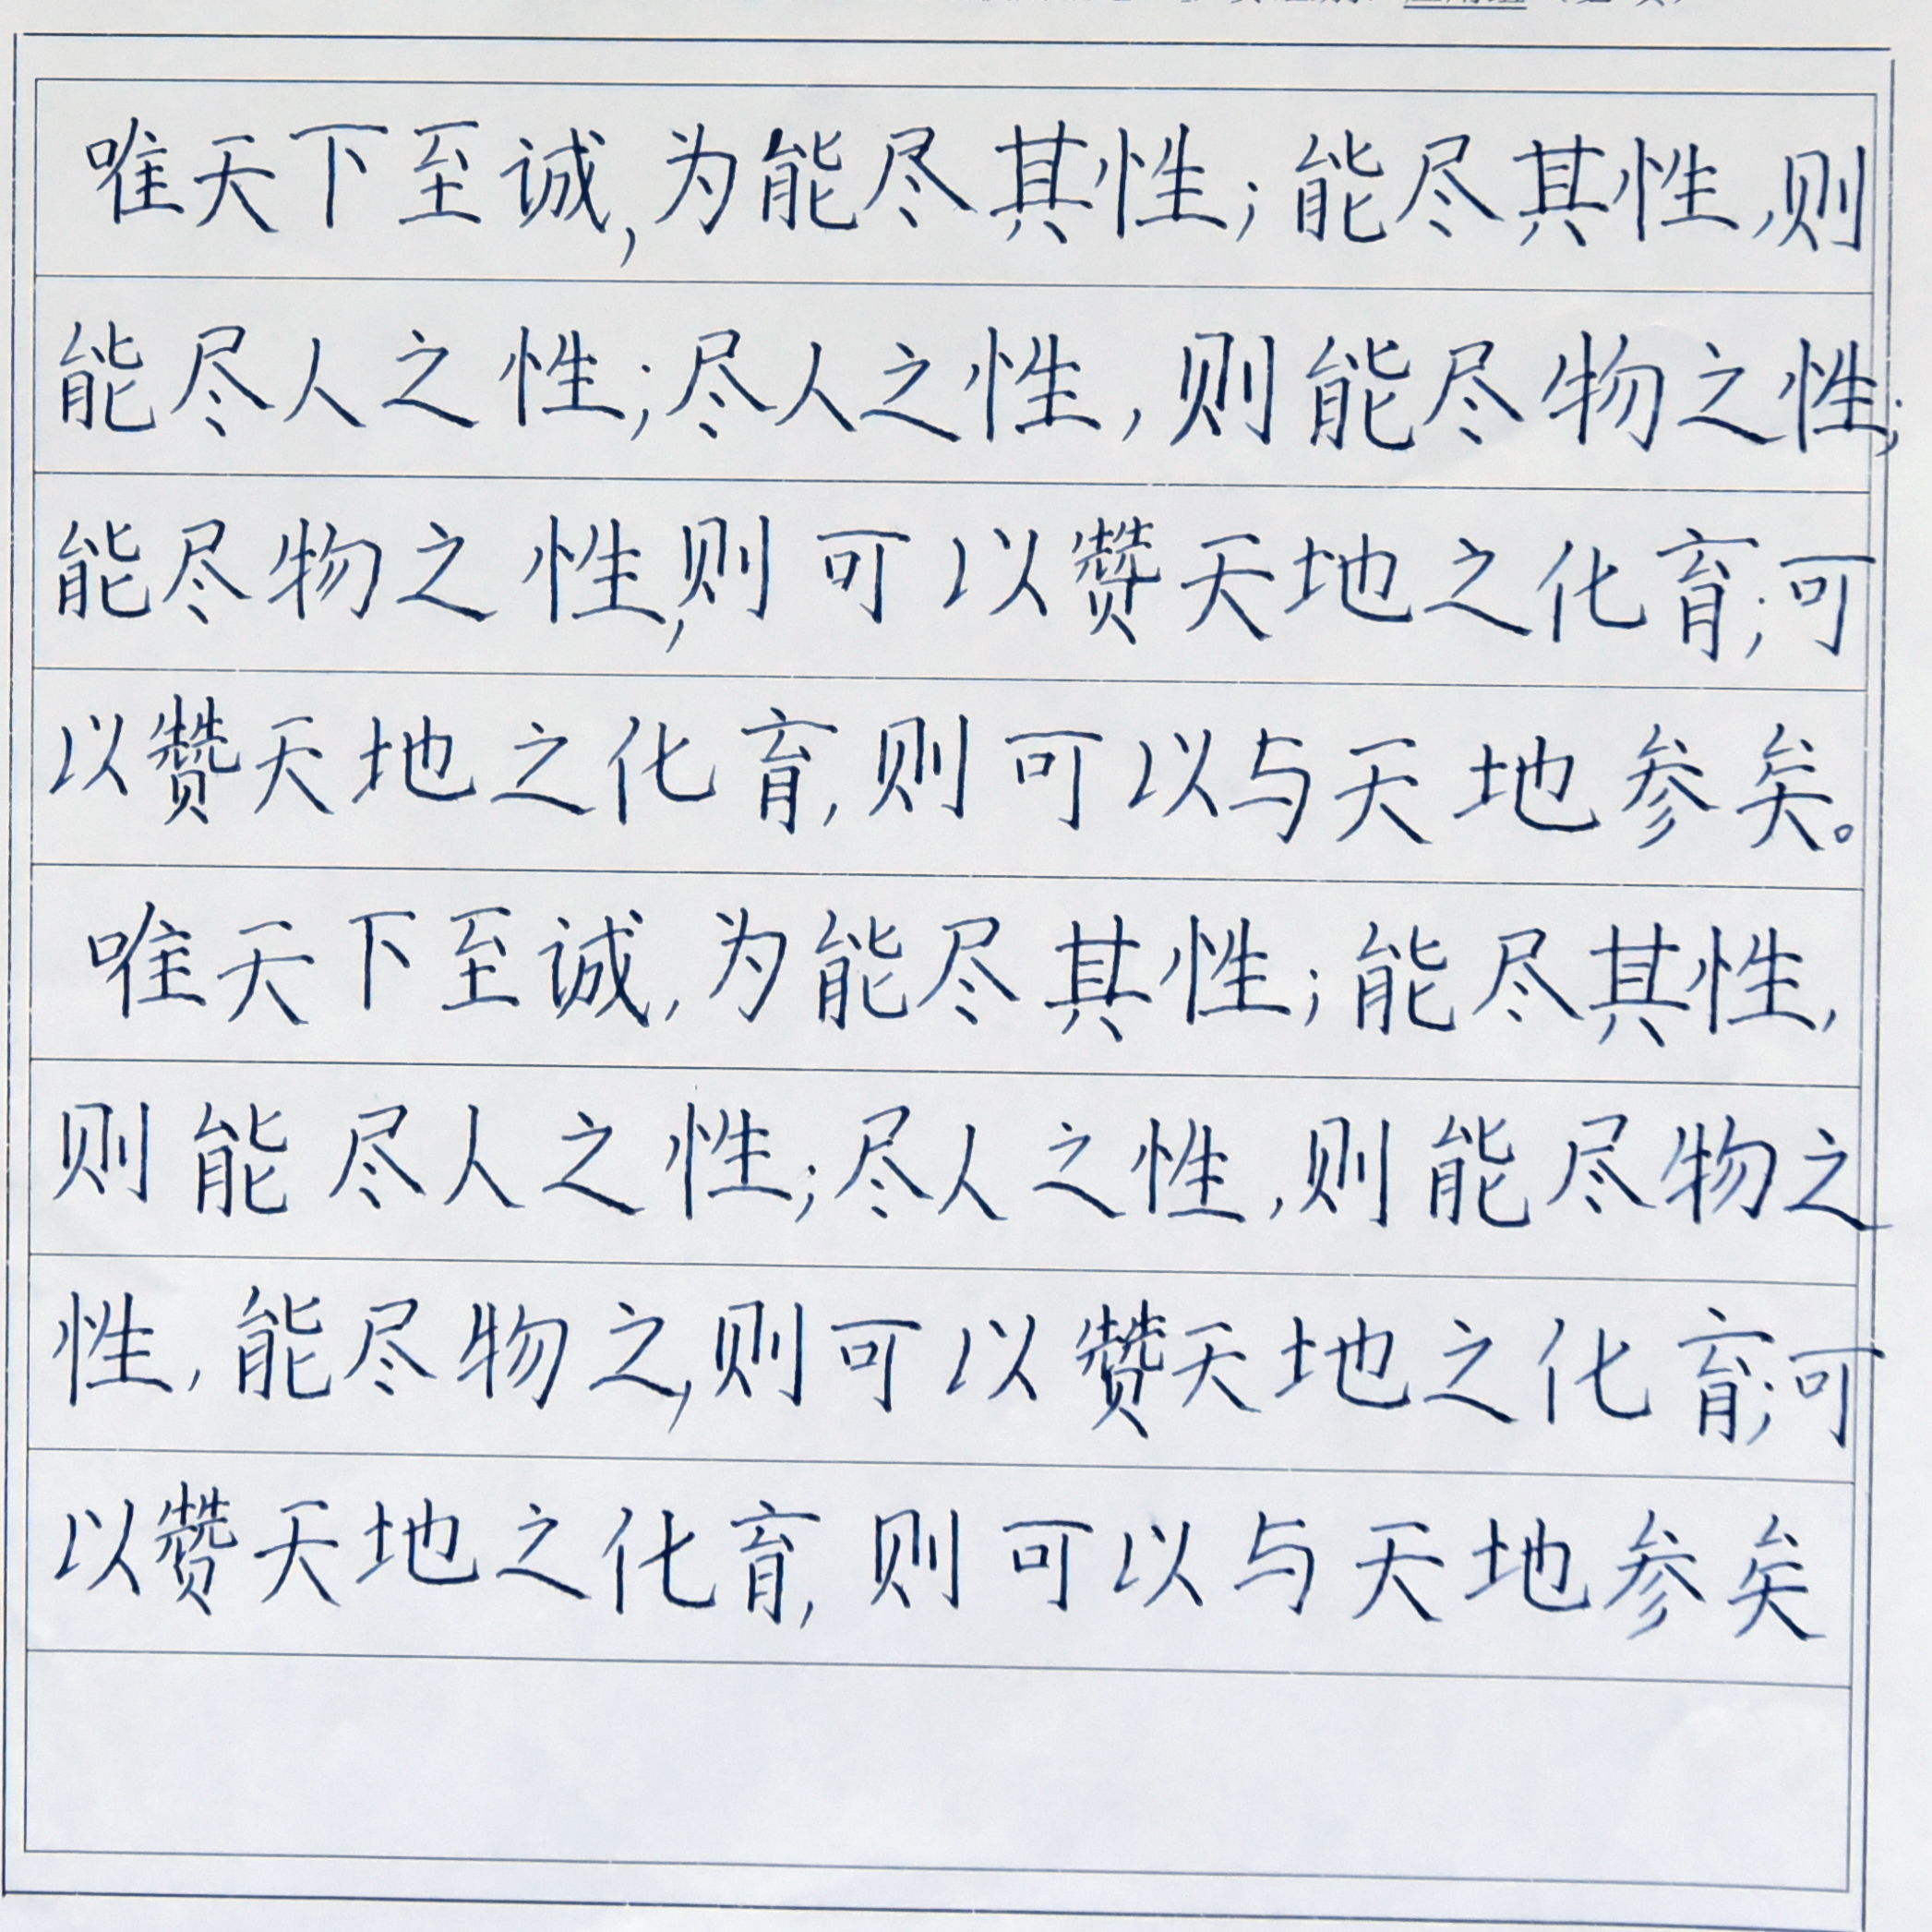 唯天下至诚,为能尽其性;能尽其性,则
能尽人之性;尽人之性,则能尽物之性;
能尽物之性,则可以赞天地之化育;可
以赞天地之化育,则可以与天地参矣。
唯天下至诚,为能尽其性;能尽其性,
则能尽人之性;尽人之性,则能尽物之
性,能尽物之,则可以赞天地之化育;可
以赞天地之化育,则可以与天地参矣